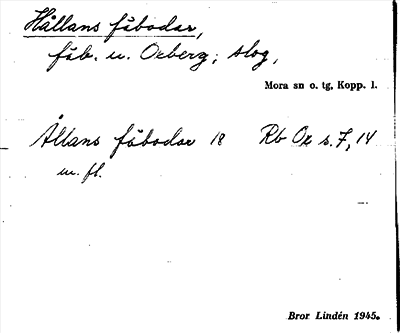 Hållans fäbodar,
fäb. u. Oxberg; slog,
Mora sn o. tg, Kopp. l.
Ållans fäbodar 18 Rb Ox s. 7, 14
m. fl.
Bror Lindén 1945.